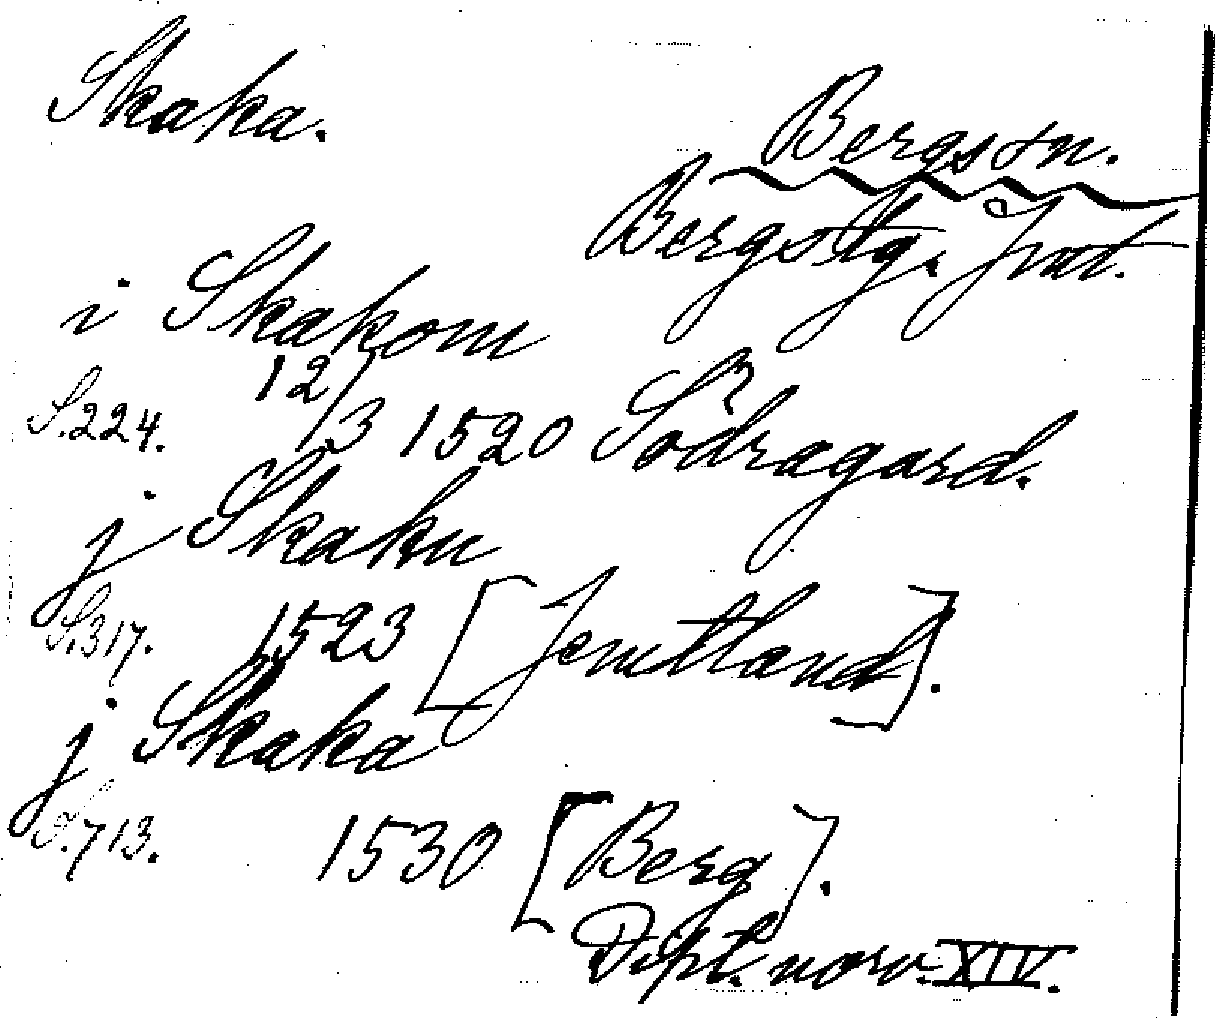 Skaka.
Bergs sn.
Bergs tg. Jmt.
i Skakom
S.224. 12/3 1520 Södragard.
j Skaku
S.317. 1523 [Jemtland].
j Skaka
S.713. 1530 [Berg].
Dipl. norv. XIV.